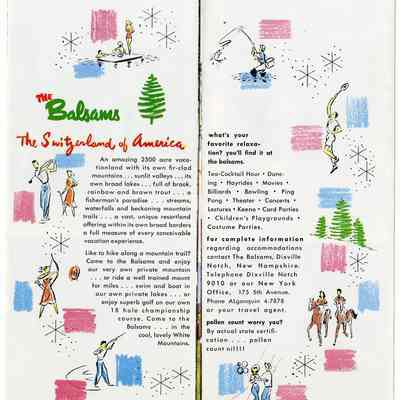 THE
Balsams
The Switzerland of America
An amazing 2500 acre vaca-
tionland with its own fir-clad
mountains . . . sunlit valleys . . . its
own broad lakes . . . full of brook,
rainbow and brown trout . . . a
fisherman's paradise . . . streams,
waterfalls and beckoning mountain
trails . . . a vast, unique resortland
offering within its own broad borders
a full measure of every conceivable
vacation experience.
Like to hike along a mountain trail?
Come to the Balsams and enjoy
our very own private mountain
. . . or ride a well trained mount
for miles . . . swim and boat in
our own private lakes . . . or
enjoy superb golf on our own
18 hole championship
course. Come to the
Balsams . . . in the
cool, lovely White
Mountains.
what's your
favorite relaxa-
tion? you'll find it at
the balsams.
Tea-Cocktail Hour • Danc-
ing • Hayrides • Movies •
Billiards • Bowling • Ping
Pong • Theater • Concerts •
Lectures • Keeno • Card Parties
• Children's Playgrounds •
Costume Parties.
for complete information
regarding accommodations
contact The Balsams, Dixville
Notch, New Hampshire.
Telephone Dixville Notch
9010 or our New York
Office, 175 5th Avenue.
Phone Algonquin 4-7878
or your travel agent.
pollen count worry you?
By actual state certifi-
cation . . . pollen
count nil!!!